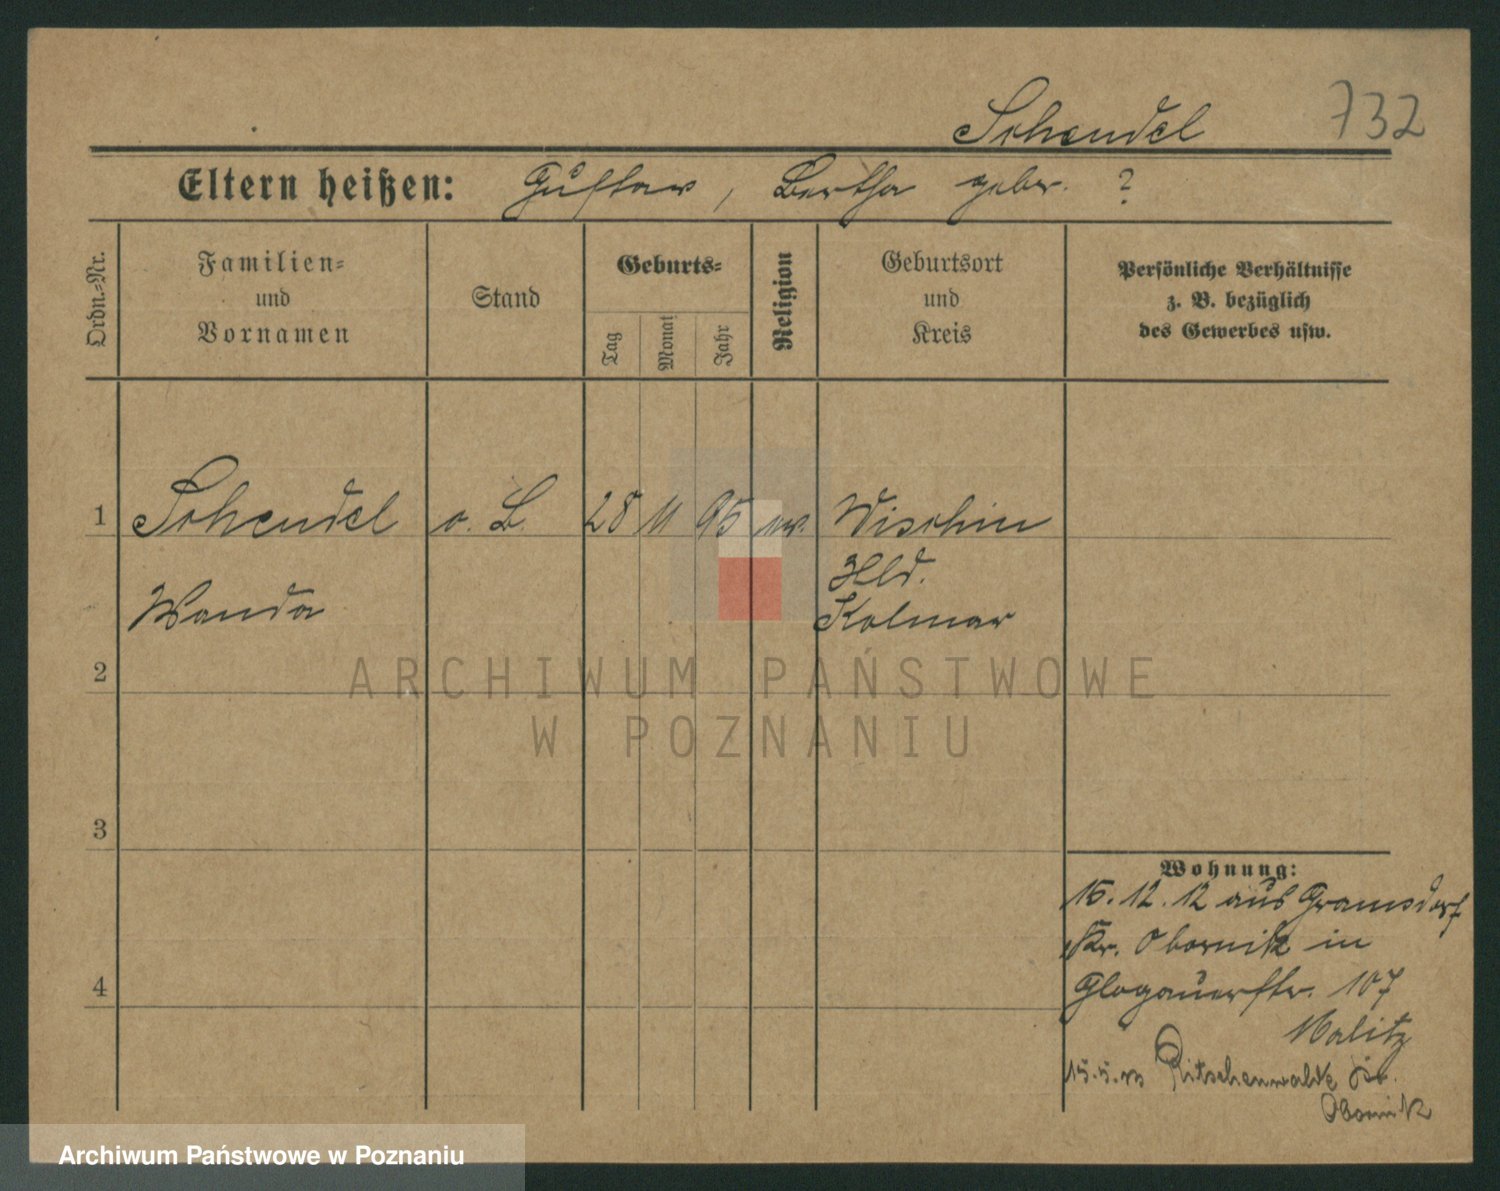 Schendel
732
Eltern heißen: Gustav, Bertha gebr. ?
Ordn.-Nr.
Familien-
und
Vornamen
Stand
Geburts-
Tag
Monat
Jahr
Religion
Geburtsort
und
Kreis
Persönliche Verhältnisse
z. B. bezüglich
des Gewerbes usw.
1 Schendel o. B. 28 11 95 ev. Wischin
Hld.
Wanda Kolmar
2
ARCHIWUM PAŃSTWOWE
W POZNANIU
3
4
Wohnung:
15. 12. 12 aus Gramsdorf
Kr. Obornik in
Glogauerstr. 107
Malitz
15.5.13 Ritschenwalde Kr.
Obornik
Archiwum Państwowe w Poznaniu